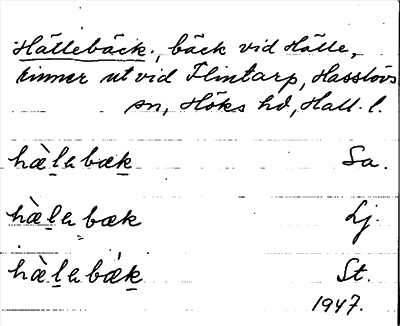 Hällebäck, bäck vid Hälle,
rinner ut vid Flintarp, Hasslövs
sn, Höks hd, Hall. l.
hæ̀lebæk Sa.
hæ̀lebæk Lj.
hæ̀lebæ̀k St.
1947.